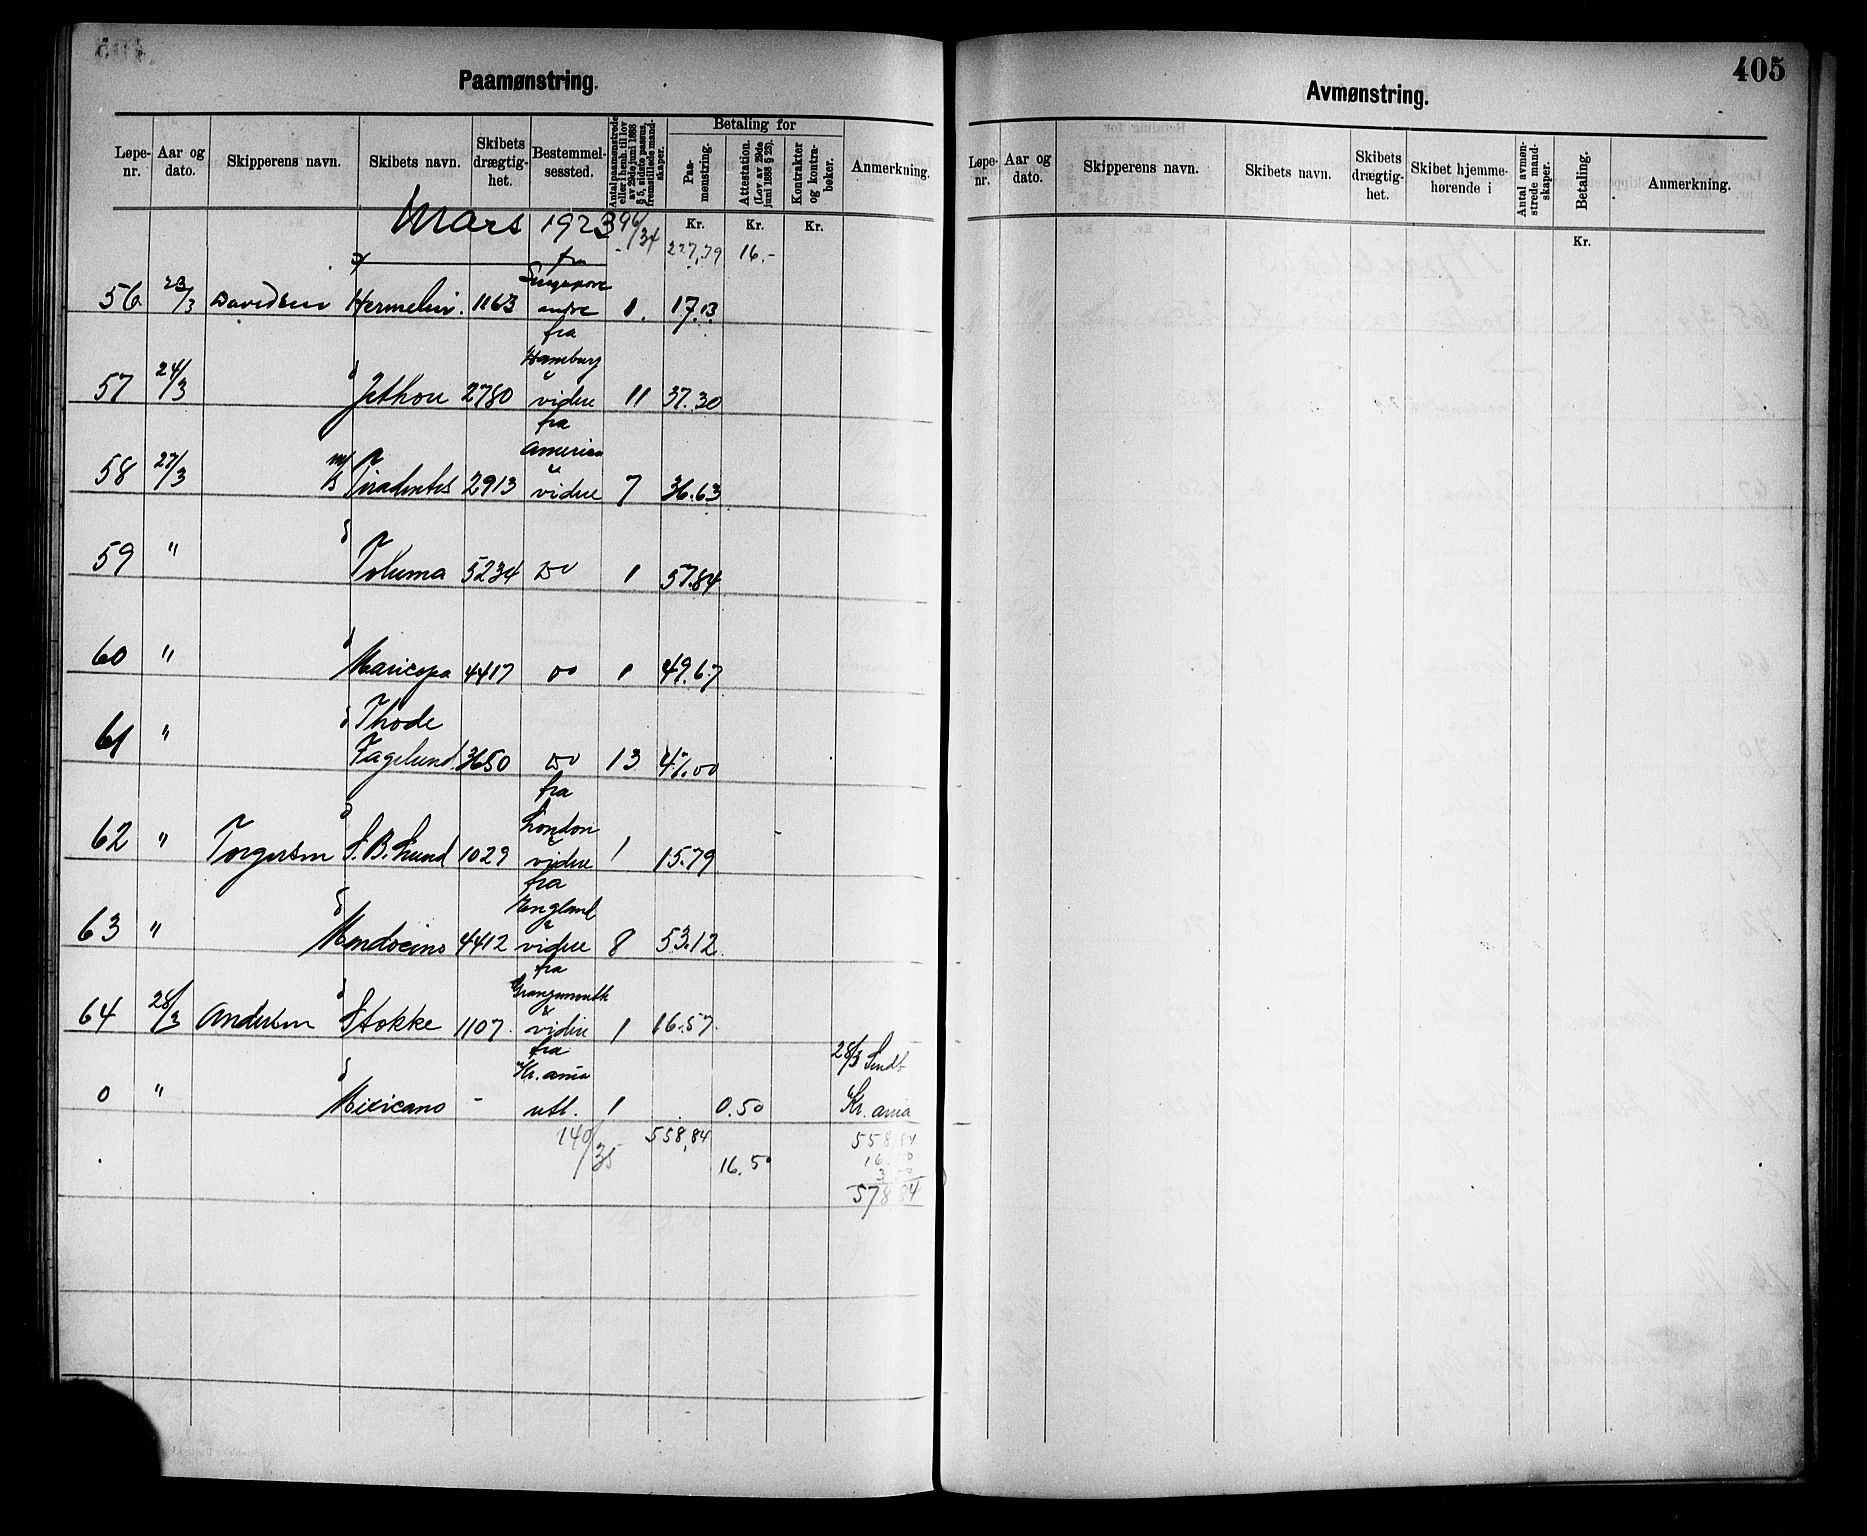 Paamønstring.
Løpe-nr.
Aar og dato.
Skipperens navn.
Skibets navn.
Skibets drægtig-het.
Bestemmel-sessted.
Antal paamønstrede eller i henh. til lov av 29de juni 1888 § 5, sidste passus, fremstillede mand-skaper.
Betaling for
Paa-mønstring.
Attestation. (Lov av 29de juni 1888 § 25).
Kontrakter og kontra-bøker.
Anmerkning.
Mars 1923 96/34
Kr. Kr. Kr.
227,79 16.-
fra
Singapore
56 23/3 Davidsen Hermelin. 1163 andre 1. 17.13
fra
Hamburg
57 24/3 Jethou 2780 videre 11 37.30
fra
America
58 27/3 m/s Tiradentes 2913 videre 7 36.63
59 " Toluma 5234 do 1 57.84
60 " Maricopa 4417 do 1 49.67
61 " Thode
Fagelund 3650 do 13 47.00
fra
London
62 " Torgersen S. B. Lund 1029 videre 1 15.79
fra
England
63 " Mendocino 4412 videre 8 53.12
fra
Grangemouth
64 28/3 Andersen Stokke 1107 videre 1 16.57
fra
Kr.ania
28/3 Sendt
0 " Mexicano - utl. 1 0.50 Kr.ania
140/35 558,84 558,84
16.50 16.50
3.00
578 84
405
Avmønstring.
Løpe-nr.
Aar og dato.
Skipperens navn.
Skibets navn.
Skibets drægtig-het.
Skibet hjemme-hørende i
Antal avmøn-strede mand-skaper.
Betaling.
Anmerkning.
Kr.